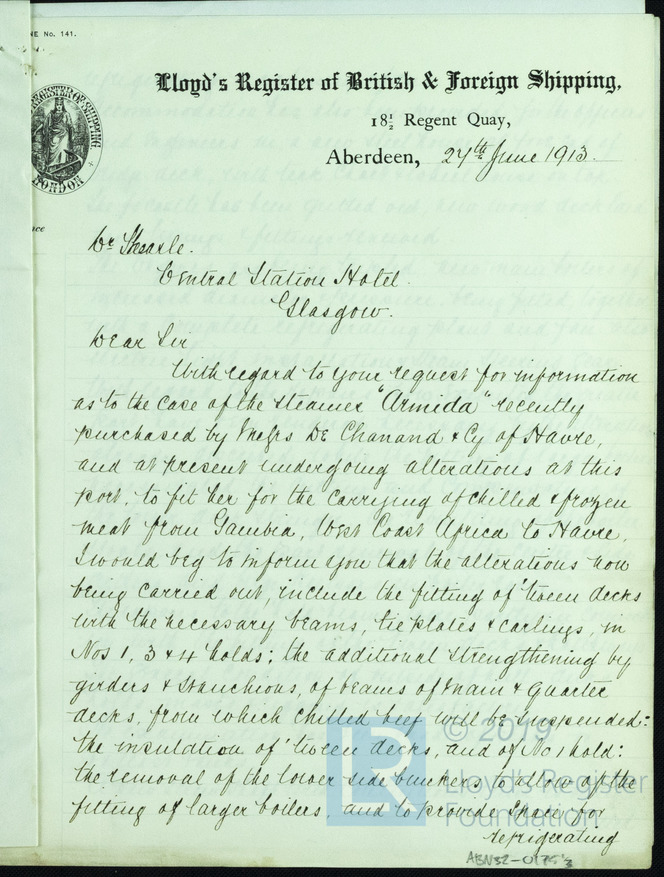 NE No. 141.
REGISTER OF SHIPPING
LONDON
Lloyd's Register of British & Foreign Shipping,
18½ Regent Quay,
Aberdeen, 24th June 1913.
Central Station Hotel.
Glasgow.
Dear Sir
With regard to your request for information
as to the case of the steamer "Armida" recently
purchased by Messrs De Chanand & Cy of Havre,
and at present undergoing alterations at this
port, to fit her for the carrying of chilled & frozen
meat from Gambia, West Coast Africa to Havre,
I would beg to inform you that the alterations now
being carried out, include the fitting of 'tween decks
with the necessary beams, tie plates & carlings, in
Nos 1, 3 & 4 holds; the additional strengthening by
girders & stanchions, of beams of main & quarter
decks, from which chilled beef will be suspended:
the insulation of 'tween decks, and of No 1 hold:
the removal of the lower side bunkers to allow of the
fitting of larger boilers, and to provide space for
refrigerating
LR
© 2019
Lloyd's Register
Foundation